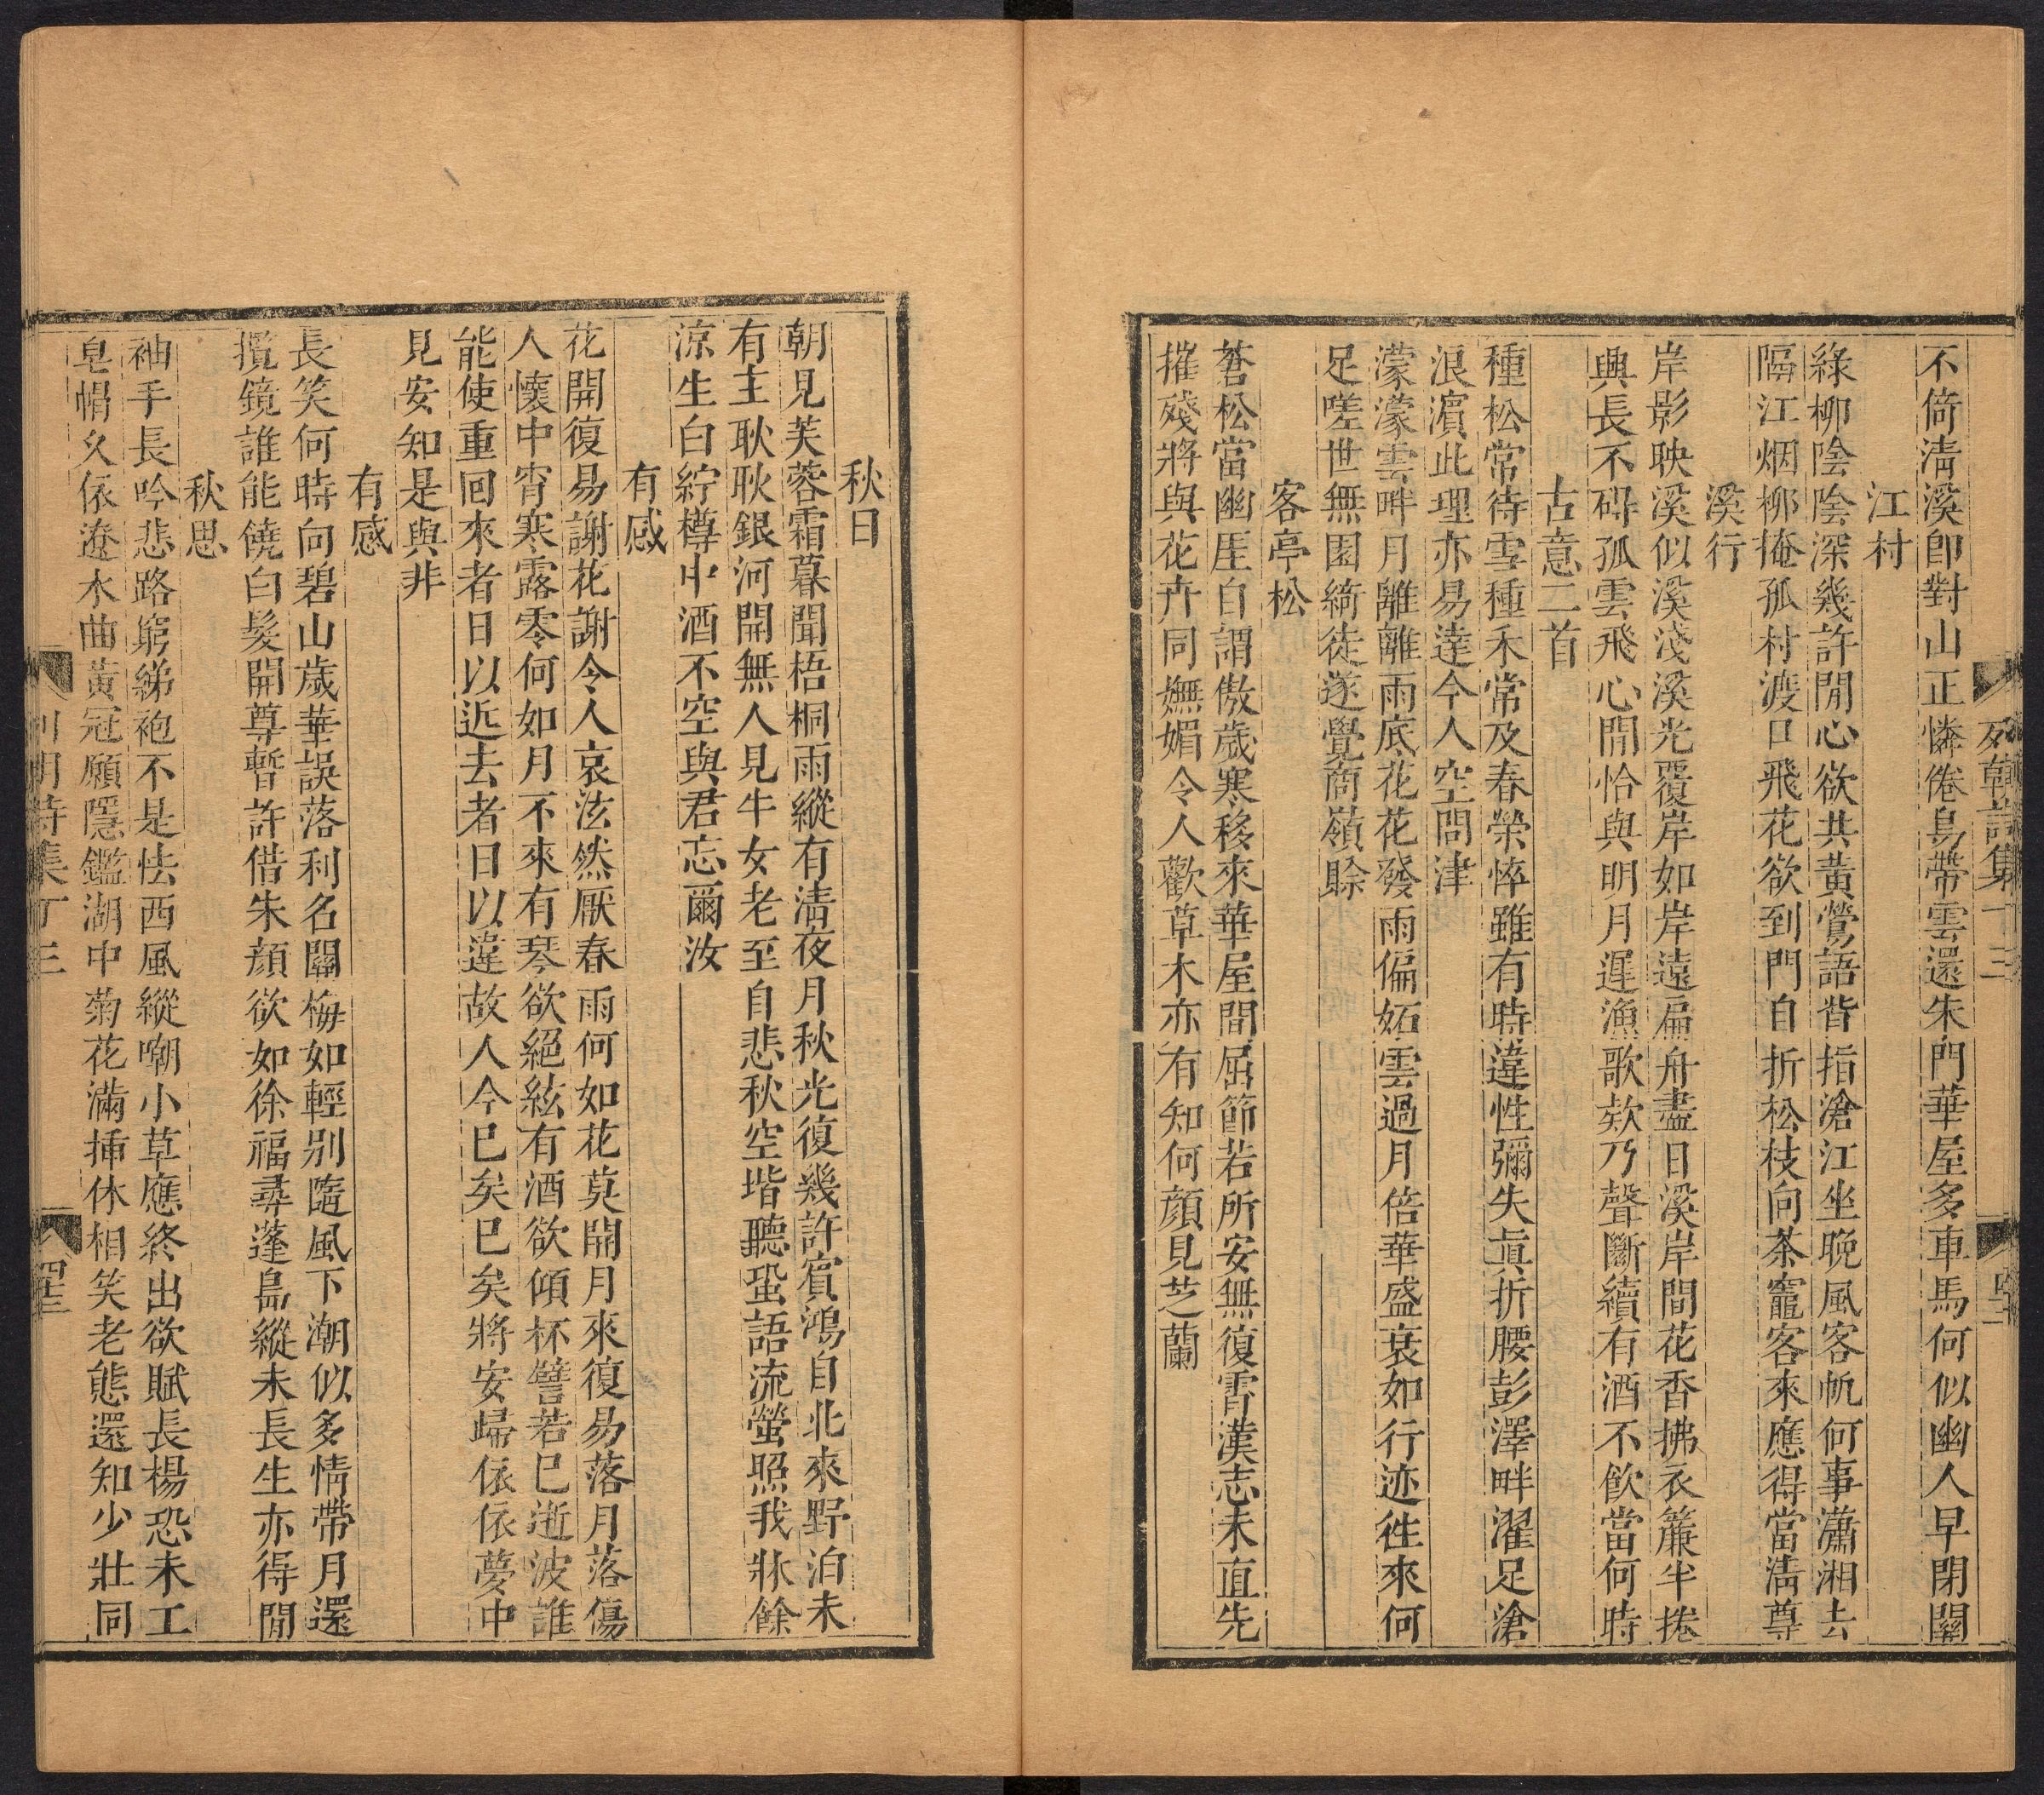 不倚淸溪卽對山正憐倦鳥帶雲還朱門華屋多車馬何似幽人早閉關
江村
綠柳陰陰深幾許閒心欲共黃鶯語皆指滄江坐晚風客帆何事瀟湘去
隔江烟柳掩孤村渡口飛花欲到門自折松枝向茶竈客來應得當淸尊
溪行
岸影映溪似溪淺溪光覆岸如岸遠扁舟盡日溪岸間花香拂衣簾半捲
興長不碍孤雲飛心閒恰與明月遲漁歌欸乃聲斷續有酒不飮當何時
古意二首
種松常待雪種禾常及春榮悴雖有時違性彌失眞折腰彭澤畔濯足滄
浪濵此理亦易達今人空問津
濛濛雲畔月離離雨底花花發雨偏妬雲過月倍華盛衰如行迹徃來何
足嗟世無園綺徒遂覺商嶺賖
客亭松
蒼松當幽厓自謂傲歲寒移來華屋間屈節若所安無復霄漢志未直先
摧殘將與花卉同嫵媚令人歡草木亦有知何顔見芝蘭
列朝詩集丁三
秋日
朝見芙蓉霜暮聞梧桐雨縱有淸夜月秋光復幾許賓鴻自北來野泊未
有主耿耿銀河開無人見牛女老至自悲秋空堦聽蛩語流螢照我牀餘
凉生白紵樽中酒不空與君忘爾汝
有感
花開復易謝花謝令人哀泫然厭春雨何如花莫開月來復易落月落傷
人懷中宵寒露零何如月不來有琴欲絕絃有酒欲傾杯譬若已逝波誰
能使重回來者日以近去者日以違故人今已矣已矣將安歸依依夢中
見安知是與非
有感
長笑何時向碧山歲華誤落利名關梅如輕別隨風下潮似多情帶月還
攬鏡誰能饒白髮開尊暫許借朱顏欲如徐福尋蓬島縱未長生亦得閒
秋思
袖手長吟悲路窮綈袍不是怯西風縱嘲小草應終出欲賦長楊恐未工
皂帽久依遼水曲黃冠願隱鑑湖中菊花滿揷休相笑老態還知少壯同
列朝詩集丁三